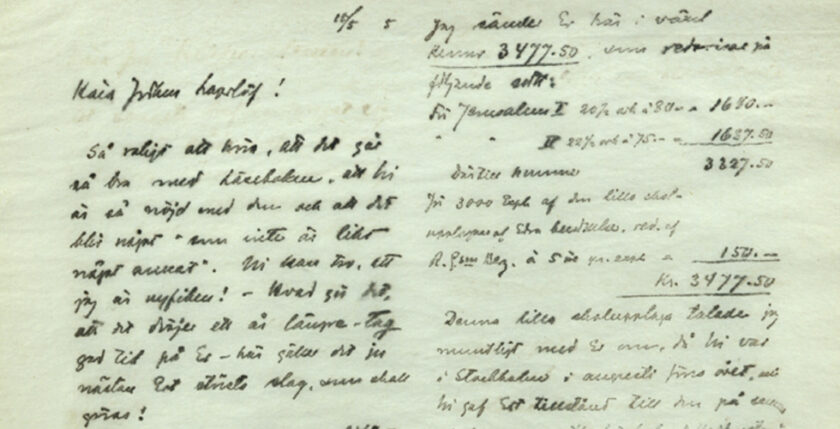 18/5 5
Kära Fröken Lagerlöf!
Så roligt att höra, att det går
så bra med läseboken, att Ni
är så nöjd med den och att det
blir något "som inte är likt
något annat". Ni kan tro, att
jag är nyfiken! - Hvad gör det,
att det dröjer ett år längre - tag
god tid på Er - här gäller det ju
nästan Ert största slag, som skall
göras!
Jag sänder Er här i växel
Kronor 3477.50, som redovisas på
följande sätt:
För Jerusalem I 20½ ark à 80.- = 1640.-
" " II 22½ ark à 75.- = 1687.50
Därtill kommer 3327.50
för 3000 Expl. af den lilla skol-
upplagan af Edra berättelser, red. af
à 5 öre pr. expl = 150.-
Kr. 3477.50
Denna lilla skolupplaga talade jag
muntligt med Er om, då Ni var
i Stockholm i augusti förra året, och
Ni gaf Ert tillstånd till den på